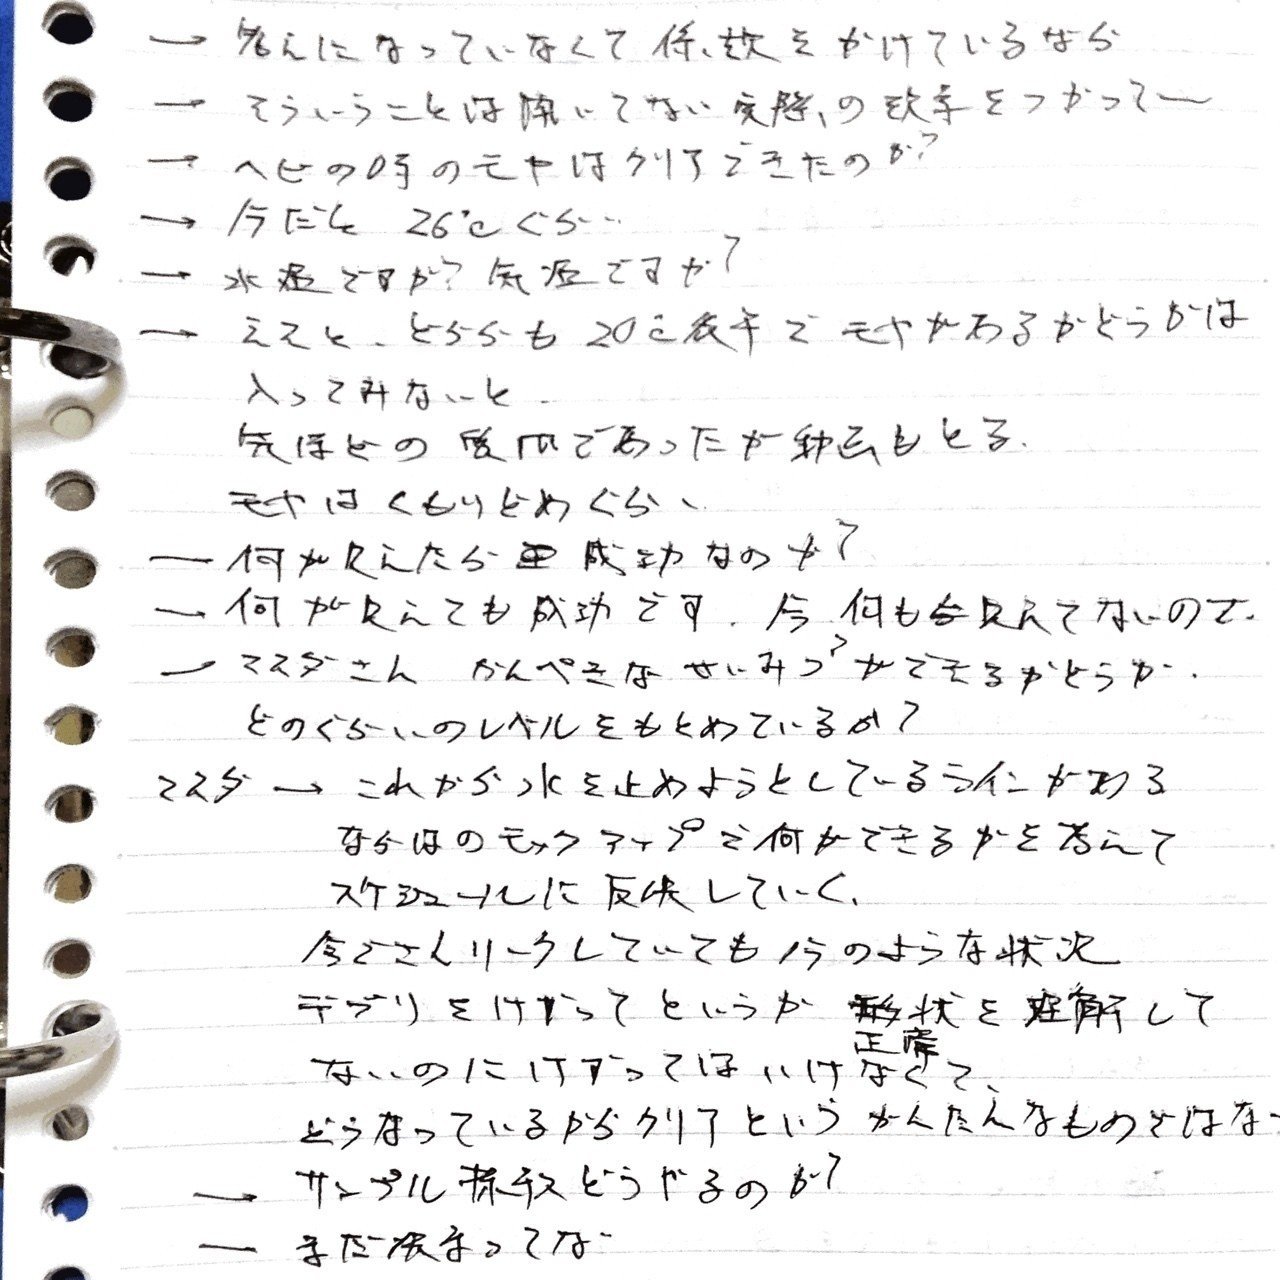 → 答えになっていなくて 係数をかけているなら
→ そういうことは聞いてない 実際、の 効率をつかってー
→ ヘビの時のモヤはクリアできたのか?
→ 今だと 26℃ぐらい
→ 水温ですか? 気温ですか?
→ ええと、どちらも 20℃後半で モヤがあるかどうかは
入ってみないと.
先ほどの質問であったが 動画もとる.
モヤはくもりどめぐらい
― 何が見えたら 成功なのか?
→ 何が見えても成功です. 今 何も見えてないので.
→ マスダさん かんぺきな せいみつ?ができるかどうか.
どのぐらいのレベルをもとめているか?
マスダ → これから水を止めようとしているラインがある
ならはのモックアップで何ができるかを考えて
スケジュールに反映していく.
今でさえリークしていても のような状況
デブリをけずってというか 形状を理解して
正常
ないのにけずってはいけなくて、
どうなっているからクリアという かんたんなものではな
→ サンプル採取どうやるのか?
― まだ決まってな